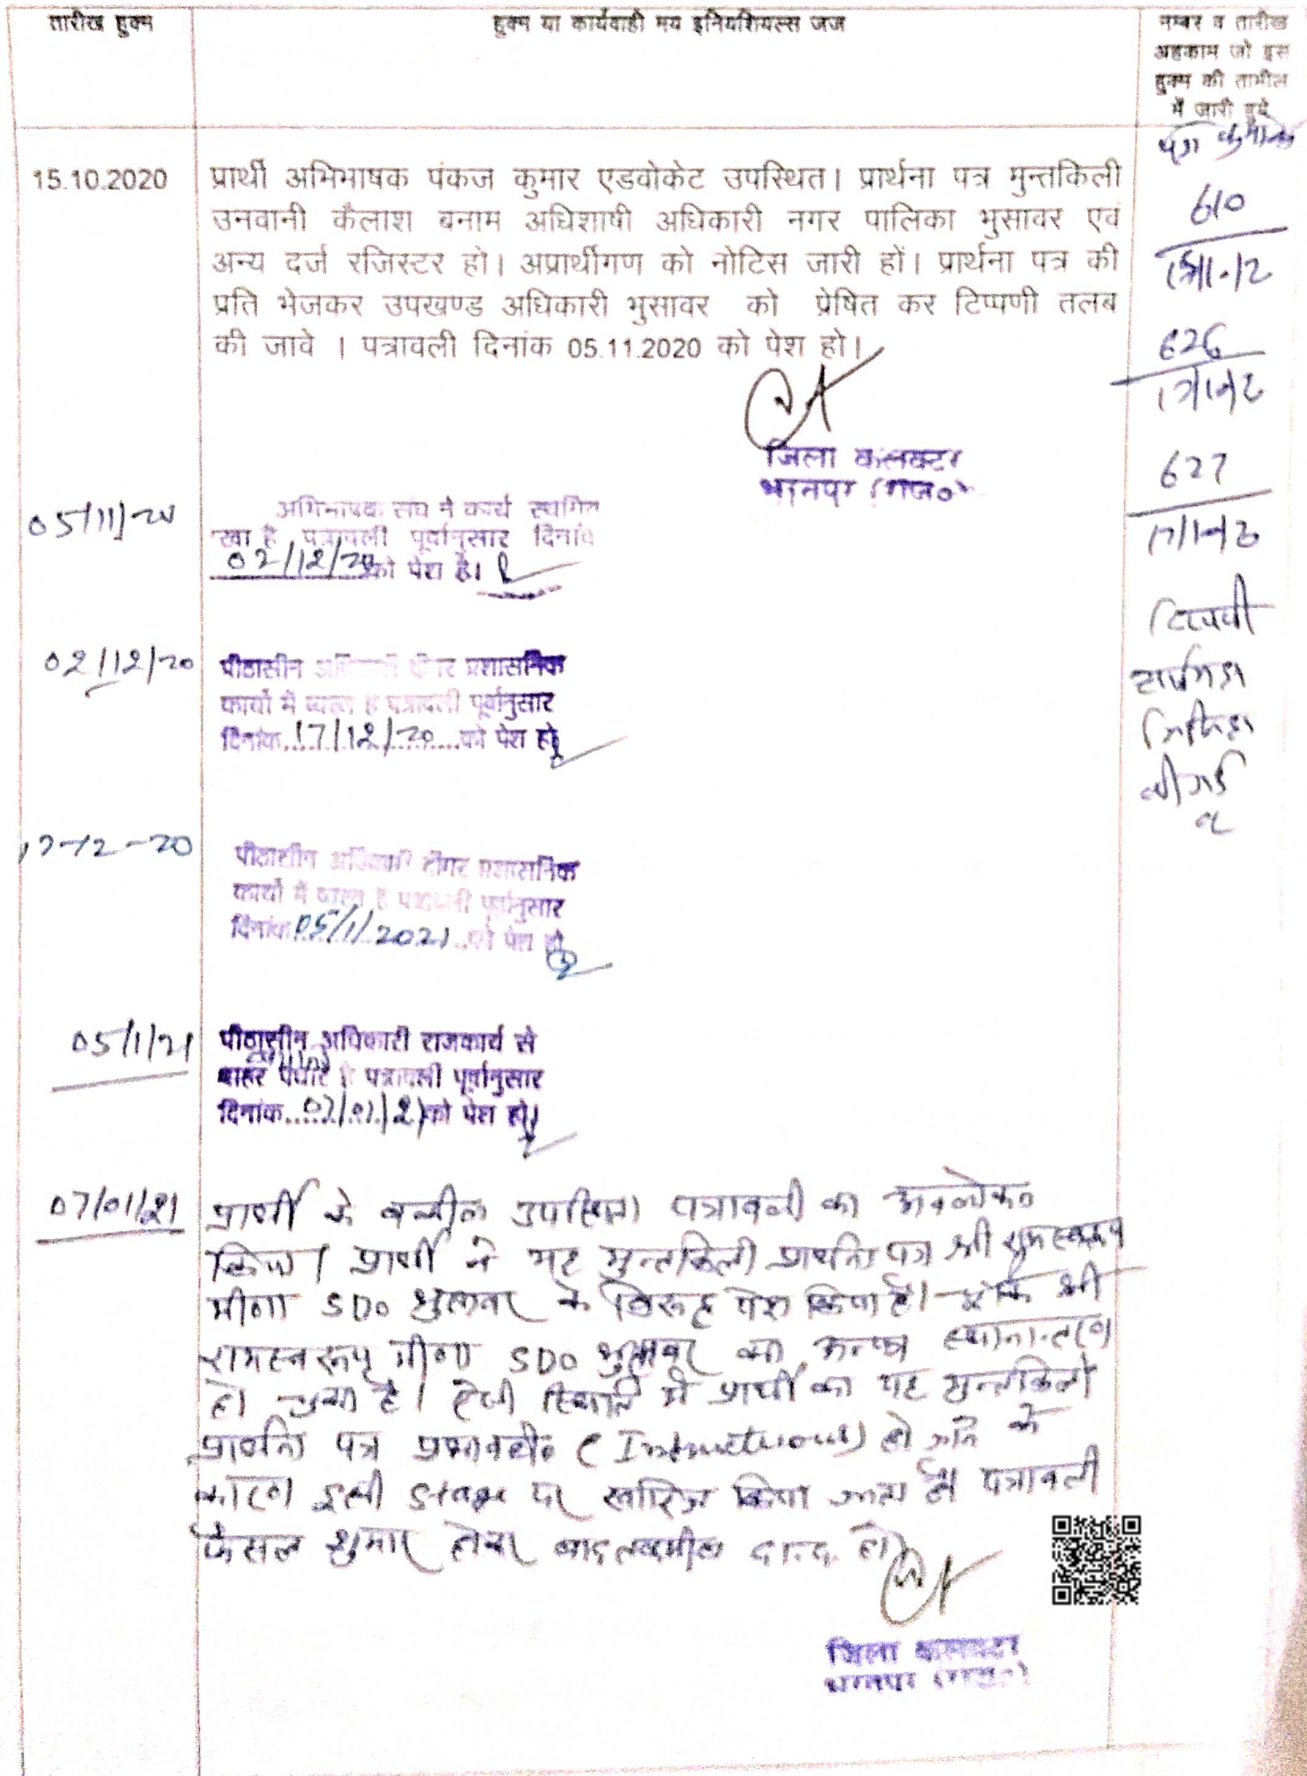 तारीख हुक्म
हुक्म या कार्यवाही मय इनियशियल्स जज
नम्बर व तारीख
अहकाम जो इस
हुक्म की तामील
में जारी हुये
15.10.2020
प्रार्थी अभिभाषक पंकज कुमार एडवोकेट उपस्थित। प्रार्थना पत्र मुन्तकिली
उनवानी कैलाश बनाम अधिशाषी अधिकारी नगर पालिका भुसावर एवं
अन्य दर्ज रजिस्टर हो। अप्रार्थीगण को नोटिस जारी हों। प्रार्थना पत्र की
प्रति भेजकर उपखण्ड अधिकारी भुसावर को प्रेषित कर टिप्पणी तलब
की जावे । पत्रावली दिनांक 05.11.2020 को पेश हो।
जिला कलक्टर
भरतपुर (राज०)
610
626
627
05/11/20
अभिभाषक संघ ने कार्य स्थगित
रखा है पत्रावली पूर्वानुसार दिनांक
02/12/20 को पेश है।
टिप्पणी
02/12/20
पीठासीन अधिकारी दीगर प्रशासनिक
कार्यो में व्यस्त है पत्रावली पूर्वानुसार
दिनांक 17/12/20 को पेश हो
17-12-20
पीठासीन अधिकारी दीगर प्रशासनिक
कार्यो में व्यस्त है पत्रावली पूर्वानुसार
दिनांक 05/1/2021 को पेश हो
05/1/21
पीठासीन अधिकारी राजकार्य से
बाहर पधारे है पत्रावली पूर्वानुसार
दिनांक 07/01/21 को पेश हो
07/01/21
प्रार्थी के वकील उपस्थित। पत्रावली का अवलोकन
किया। प्रार्थी ने यह मुन्तकिली प्रार्थना पत्र श्री रामस्वरूप
मीणा SDO भुसावर के विरुद्ध पेश किया है। चूंकि श्री
रामस्वरूप मीणा SDO भुसावर का अन्यत्र स्थानान्तरण
हो चुका है। ऐसी स्थिति में प्रार्थी का यह मुन्तकिली
प्रार्थना पत्र (Infructuous) हो जाने के
कारण इसी stage पर खारिज किया जाता है। पत्रावली
फैसल शुमार होकर बाद तकमील दा.द. हो।
जिला कलक्टर
भरतपुर (राज०)